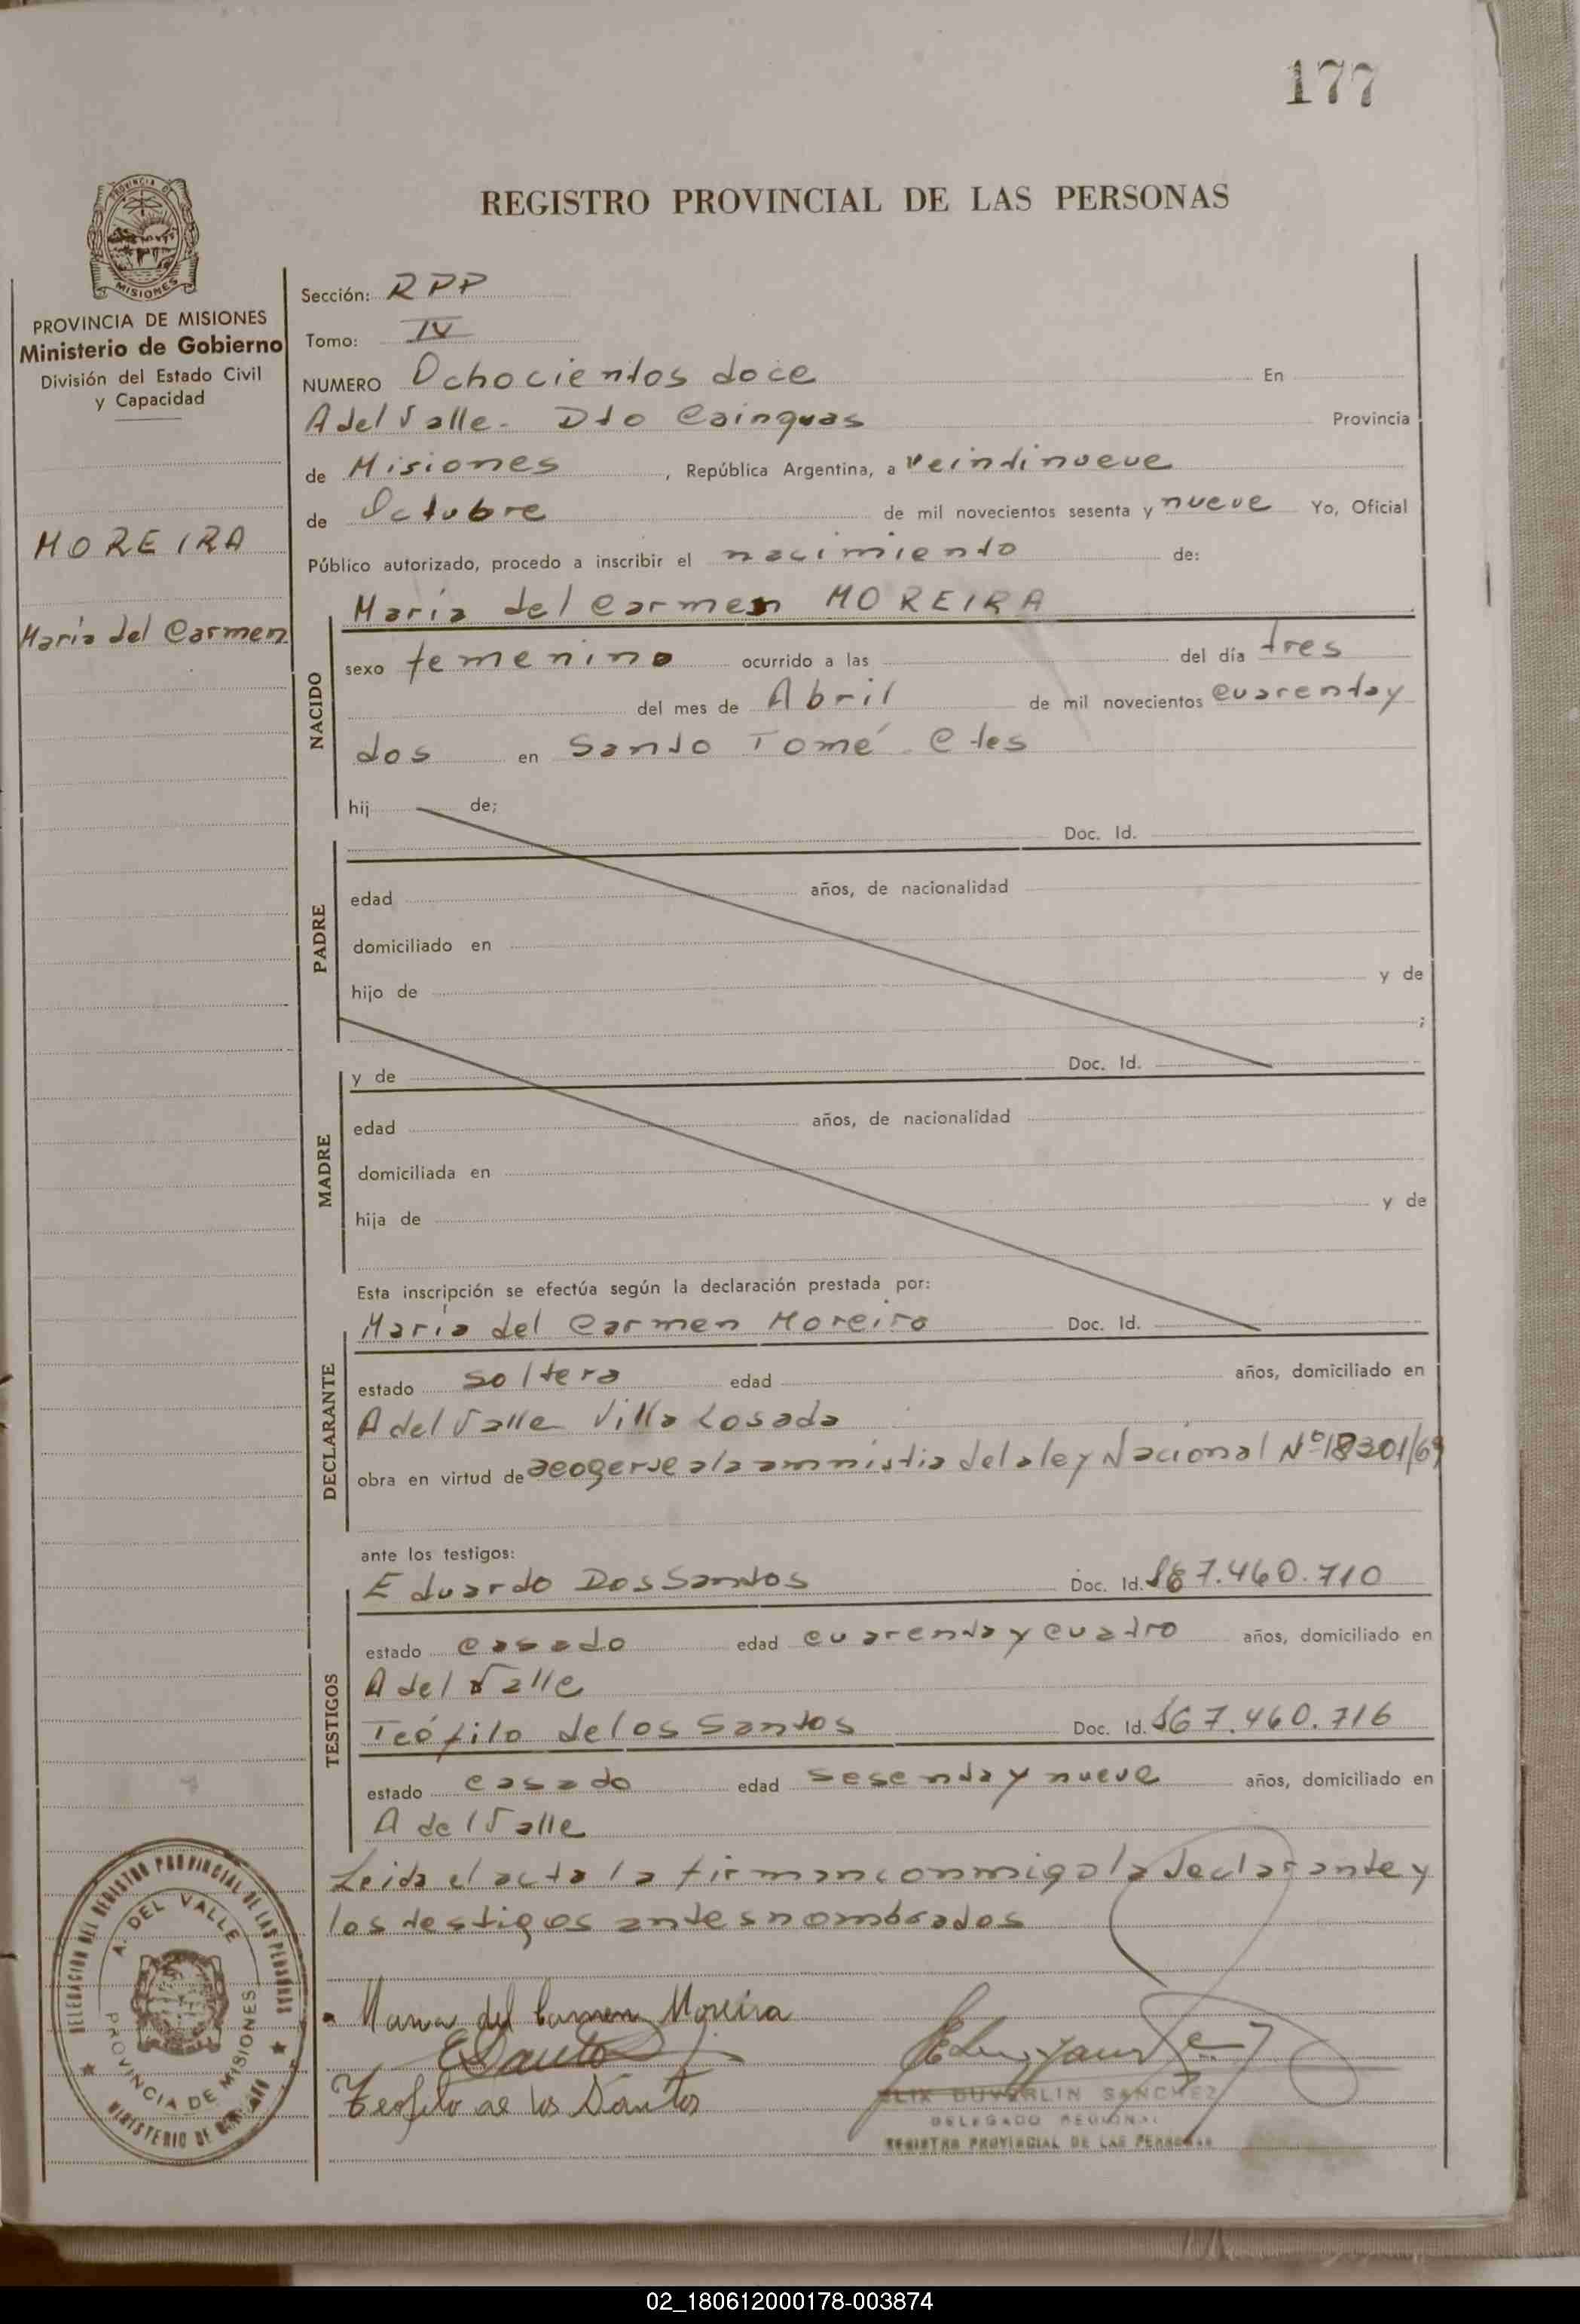 177
REGISTRO PROVINCIAL DE LAS PERSONAS
PROVINCIA DE MISIONES
PROVINCIA DE MISIONES
Ministerio de Gobierno
División del Estado Civil
y Capacidad
MOREIRA
María del Carmen
Sección: RPP
Tomo: IV
NUMERO Ochocientos doce En
A del Valle - Dto Cainguas Provincia
de Misiones , República Argentina, a veintinueve
de Octubre de mil novecientos sesenta y nueve Yo, Oficial
Público autorizado, procedo a inscribir el nacimiento de:
María del Carmen MOREIRA
NACIDO
sexo femenino ocurrido a las del día tres
del mes de Abril de mil novecientos cuarenta y
dos en Santo Tomé - Ctes
hij de;
Doc. Id.
PADRE
edad años, de nacionalidad
domiciliado en
hijo de y de
;
y de Doc. Id.
MADRE
edad años, de nacionalidad
domiciliada en
hija de y de
Esta inscripción se efectúa según la declaración prestada por:
María del Carmen Moreira Doc. Id.
DECLARANTE
estado soltera edad años, domiciliado en
A del Valle Villa Losada
obra en virtud de acogerse a la amnistia de la ley Nacional Nº 18301/69
ante los testigos:
Eduardo Dos Santos Doc. Id. 7.460.710
TESTIGOS
estado casado edad cuarenta y cuatro años, domiciliado en
A del Valle
Teófilo de los Santos Doc. Id. 7.460.716
estado casado edad sesenta y nueve años, domiciliado en
A del Valle
Leida el acta la firman conmigo la declarante y
los testigos antes nombrados
Maria del Carmen Moreira
Teofilo de los Santos
DUVERLIN SANCHEZ
DELEGADO REGIONAL
REGISTRO PROVINCIAL DE LAS PERSONAS
DELEGACION DEL REGISTRO PROVINCIAL DE LAS PERSONAS
A. DEL VALLE
PROVINCIA DE MISIONES
MINISTERIO DE
02_180612000178-003874